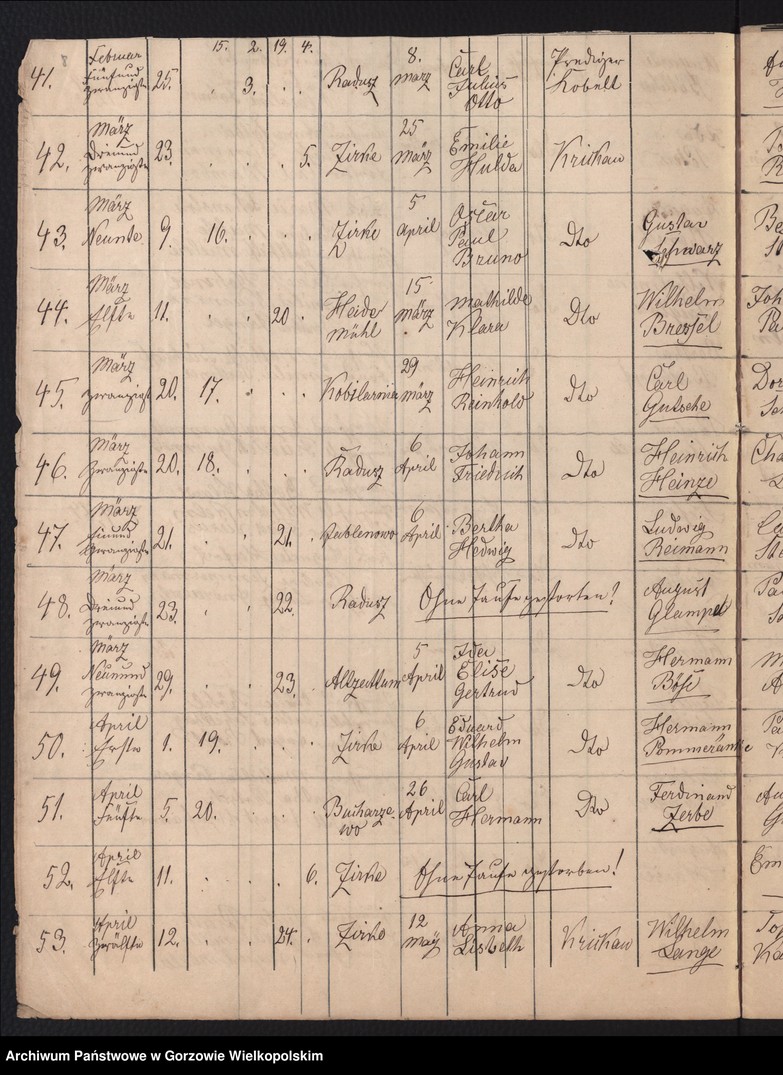 15. 2. 19. 4.
41. Februar fünfund zwanzigste 25. . 3. . . Radusz 8. März Carl Julius Otto Prediger Kobelt
42. März Dreiund zwanzigste 23. . . . 5. Zirke 25 März Emilie Hulda Krickau
43. März Neunte 9. 16. . . . Zirke 5 April Oscar Paul Bruno Dto Gustav Schwarz
44. März Elfte 11. . . 20 . Heider mühl 15 März Mathilde Klara Dto Wilhelm Bressel
45. März zwanzigst 20. 17. . . . Kobilarnia 29 März Heinrich Reinhold Dto Carl Gutsche
46. März Zwanzigste 20. 18. . . . Radusz 6 April Johann Friedrich Dto Heinrich Heinze
47. März Einund Zwanzigste 21. . . 21. . 6 April Bertha Hedwig Dto Ludwig Reimann
48. März Dreiund zwanzigste 23. . . 22. Radusz Ohne Taufe gestorben! August
49. März Neunund zwanzigste 29. . . 23. Altzattum 5 April Ida Elise Gertrud Dto Hermann Böse
50. April Erste 1. 19. . . . Zirke 6 April Eduard Wilhelm Gustav Dto Hermann Pommeränke
51. April Fünfte 5. 20. . . . Bucharze wo 26 April Carl Hermann Dto Ferdinand Zerbe
52. April Elfte 11. . . . 6. Zirke Ohne Taufe gestorben!
53. April Zwölfte 12. . . 24. . Zirke 12 May Anna Lisbeth Krickau Wilhelm Lange
Archiwum Państwowe w Gorzowie Wielkopolskim